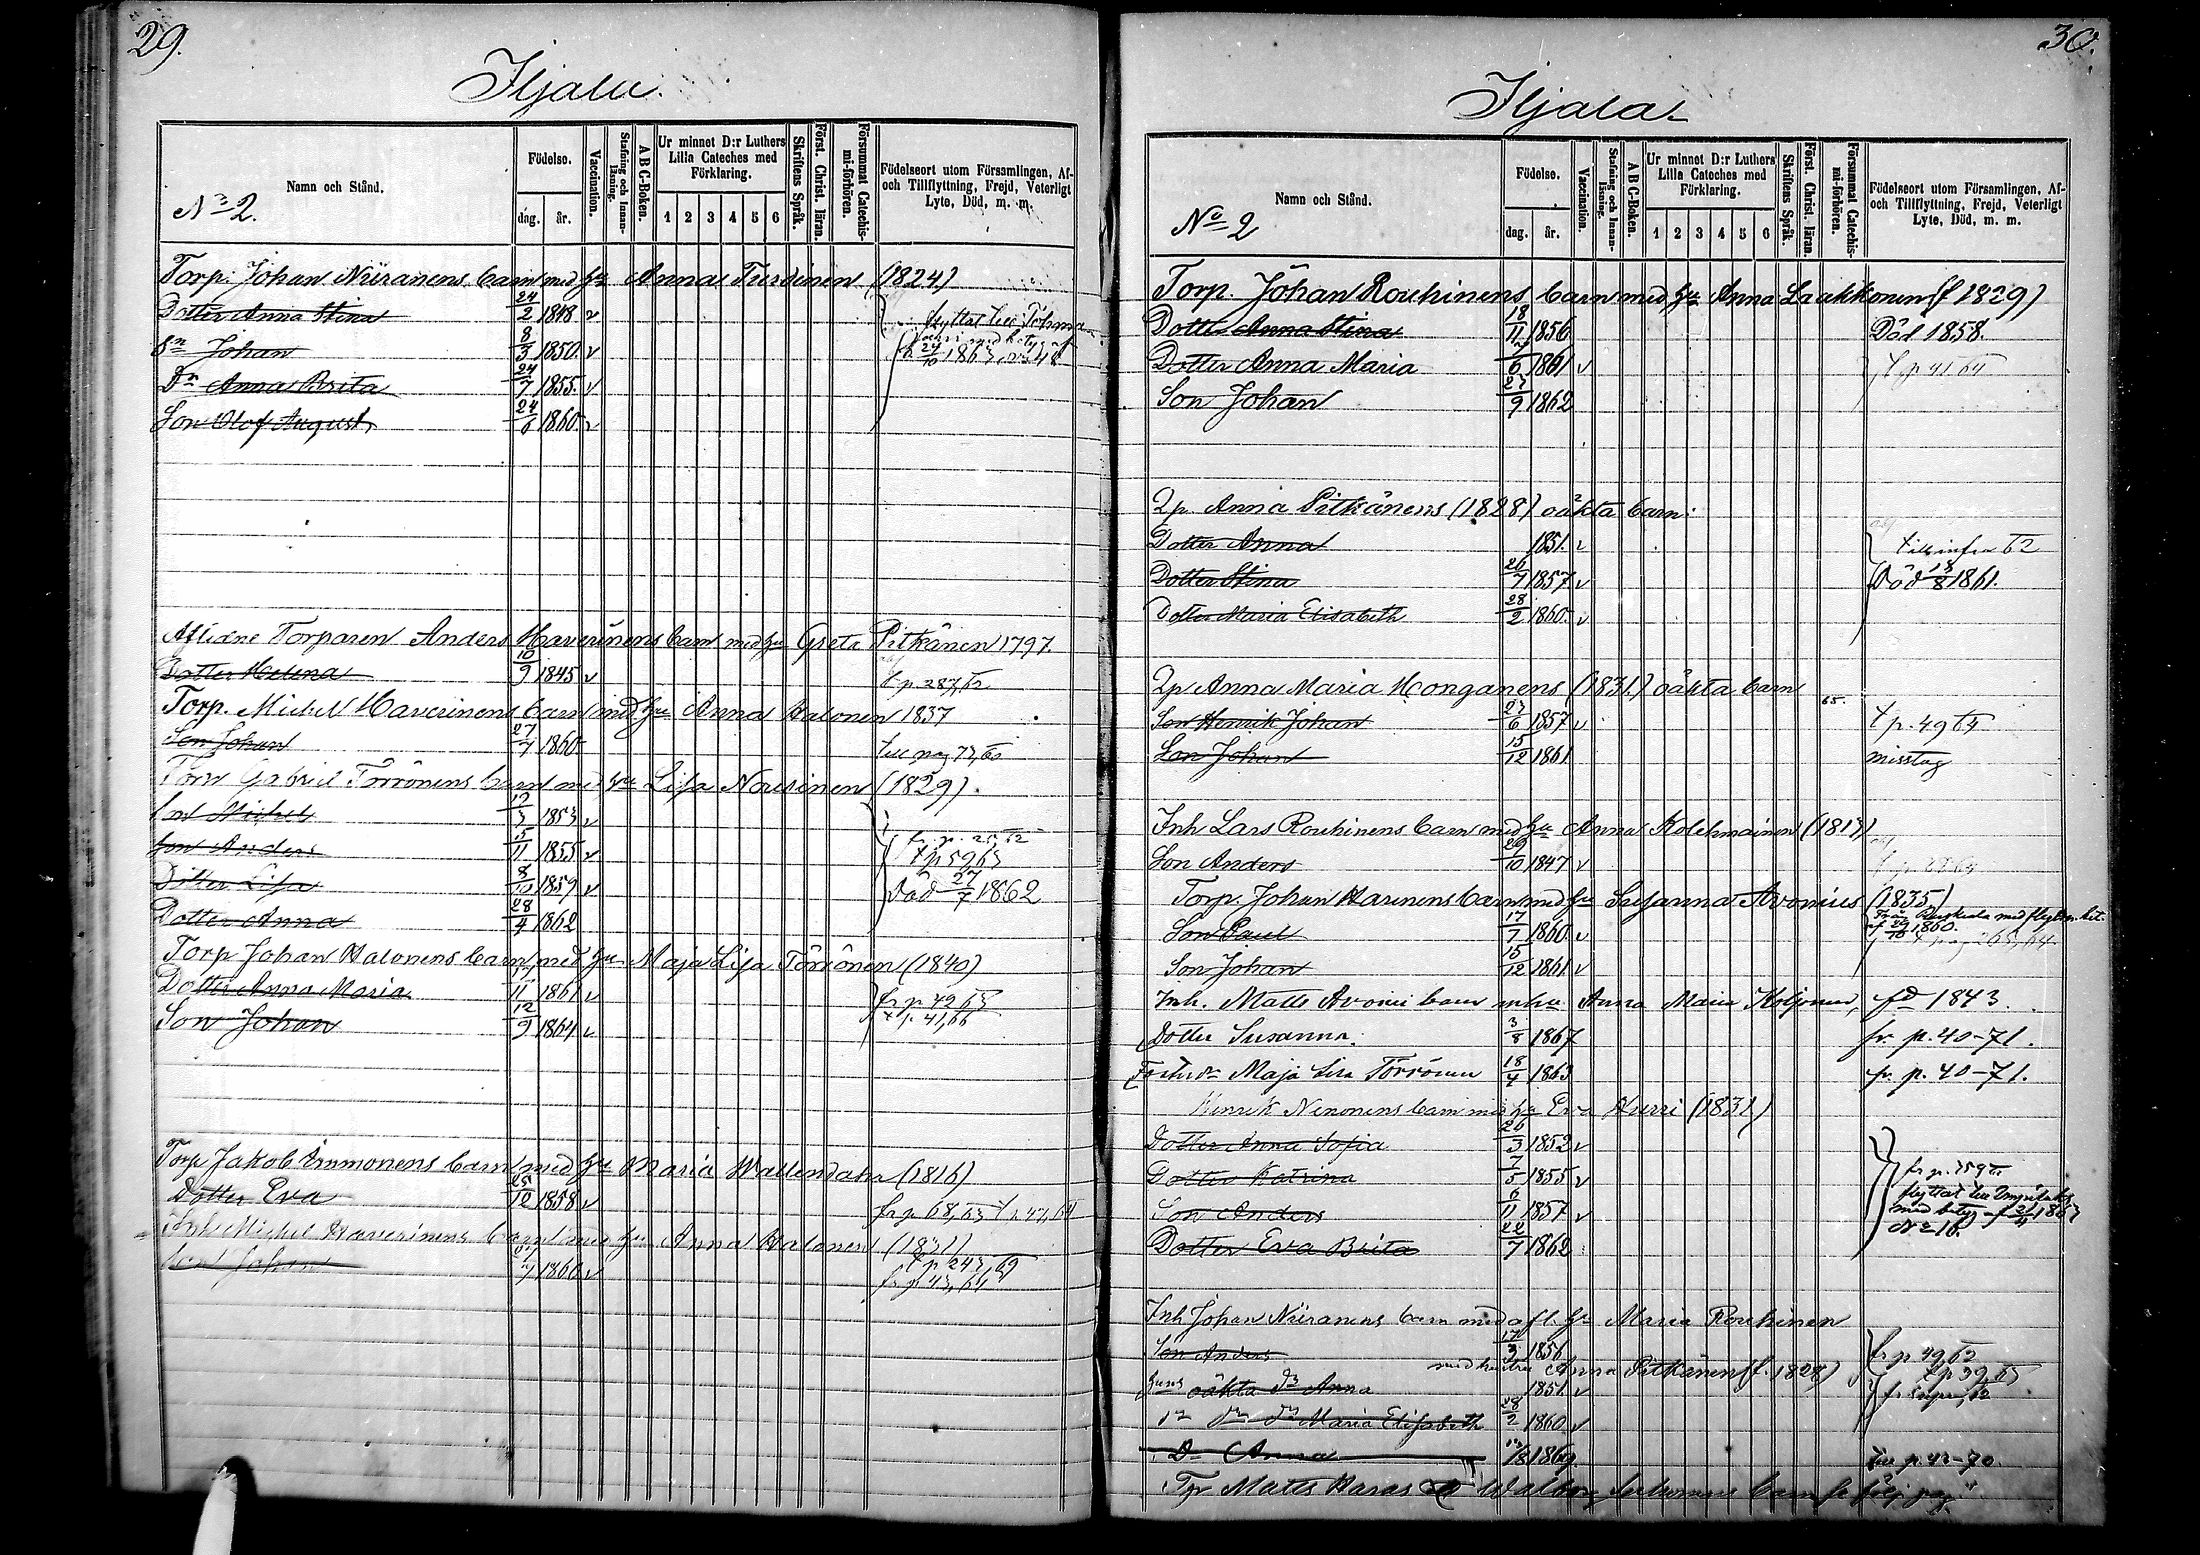 29.
Iljala.
Namn och Stånd.
No 2.
Födelse.
dag. år.
Vaccination.
Stafning och Innan-läsning.
A B C-Boken.
Ur minnet D:r Luthers Lilla Cateches med Förklaring.
1 2 3 4 5 6
Skriftens Språk.
Först. Christ. läran.
Försummat Catechis-mi-förhören.
Födelseort utom Församlingen, Af- och Tillflyttning, Frejd, Veterligt Lyte, Död, m. m.
Torp. Johan Niiranens barn med hu Anna Turdinen (1824)
Dotter Anna Stina 24/2 1848 v flyttat till
Sn Johan 8/3 1850. v 24/10 1863 No 48
Dr Anna Brita 24/7 1855. v
Son Olof August 24/6 1860. v
Aflidne Torparen Anders Haverinens barn med hu Greta Pitkänen 1797.
Dotter Helena 10/9 1845 v t p. 287, 62
Torp. Michel Haverinens barn med hu Anna Halonen 1837
Son Johan 27/7 1860 till pag 73, 60
Torp Gabriel Törrönens barn med hu Lisa Nousinen (1829).
Son Michel 12/3 1853 v
Son Anders 5/11 1855 v fr. p. 25, 62 t p 59, 63
Dotter Lisa 8/10 1859 v Död 27/7 1862
Dotter Anna 28/4 1862
Torp Johan Halonens barn med hu Maja Lisa Törrönen (1840)
Dotter Anna Maria 11 1861 v fr p. 49 63
Son Johan 12/9 1864 v t p. 41, 66
Torp Jakob Immonens barn med hu Maria Wallendahr (1816)
Dotter Eva 25/12 1858 v fr p 68, 63 t p. 47, 64
Inh. Michel Haverinens barn med hu Anna Halonen (1831)
Son Johan 27/7 1860 v t p 243, 69
fr p 43, 64
30.
Iljala.
Namn och Stånd.
No 2
Födelse.
dag. år.
Vaccination.
Stafning och Innan-läsning.
A B C-Boken.
Ur minnet D:r Luthers Lilla Cateches med Förklaring.
1 2 3 4 5 6
Skriftens Språk.
Först. Christ. läran.
Försummat Catechis-mi-förhören.
Födelseort utom Församlingen, Af- och Tillflyttning, Frejd, Veterligt Lyte, Död, m. m.
Torp. Johan Rouhinens barn med hu Anna Laakkonen (f 1829)
Dotter Anna Stina 18/11 1856 Död 1858.
Dotter Anna Maria 6 1861 v t p 41 64
Son Johan 27/9 1862
Qp. Anna Pitkänens (1828) oäkta barn:
Dotter Anna 1851. v t ils infra 62
Dotter Stina 26/7 1857 v Död 18/8 1861.
Dotter Maria Elisabeth 28/2 1860. v
Qp Anna Maria Honganens (1831) oäkta barn
Son Henrik Johan 23/6 1857 v 65. t p. 49 64
Son Johan 15/12 1861 misstag
Inh Lars Rouhinens barn med hu Anna Kolehmainen (1813)
Son Anders 29/10 1847 v
Torp. Johan Harinens barn med hu Susanna Avonius (1835)
Son Paul 17/7 1860 v Från Ruskeala med flyttn. bet. af 29/10 1860.
Son Johan 15/12 1861 v t pag 265, 64
Inh. Matts Avoni barn m hu Anna Maria Koljonen, fd 1843.
Dotter Susanna. 3/8 1867 fr. p. 40-71.
Foster dr Maja Lisa Törrönen 18/4 1863 fr. p. 40-71.
Henrik Nenonens barn med hu Eva Hurri (1831)
Dotter Anna Sofia 26/3 1852 v
Dotter Katrina 7/5 1855 v flyttat till Impilaks
Son Anders 6/11 1857 v med betyg af 21/4 1863
Dotter Eva Brita 22/7 1862 No 16.
Inh Johan Niiranens barn med afl. hu Maria Rouhinen
Son Anders 17/3 1856 fr p 49, 62
med hustru Anna Pitkänen (f. 1828) t p 39, 65
hans oäkta dr Anna 1851. v fr supra, 62
dr Maria Elisabeth 28/2 1860 v
Dr Anna 1869. till p. 42-70.
Tp Matts Haras Walborg barn se följ pag